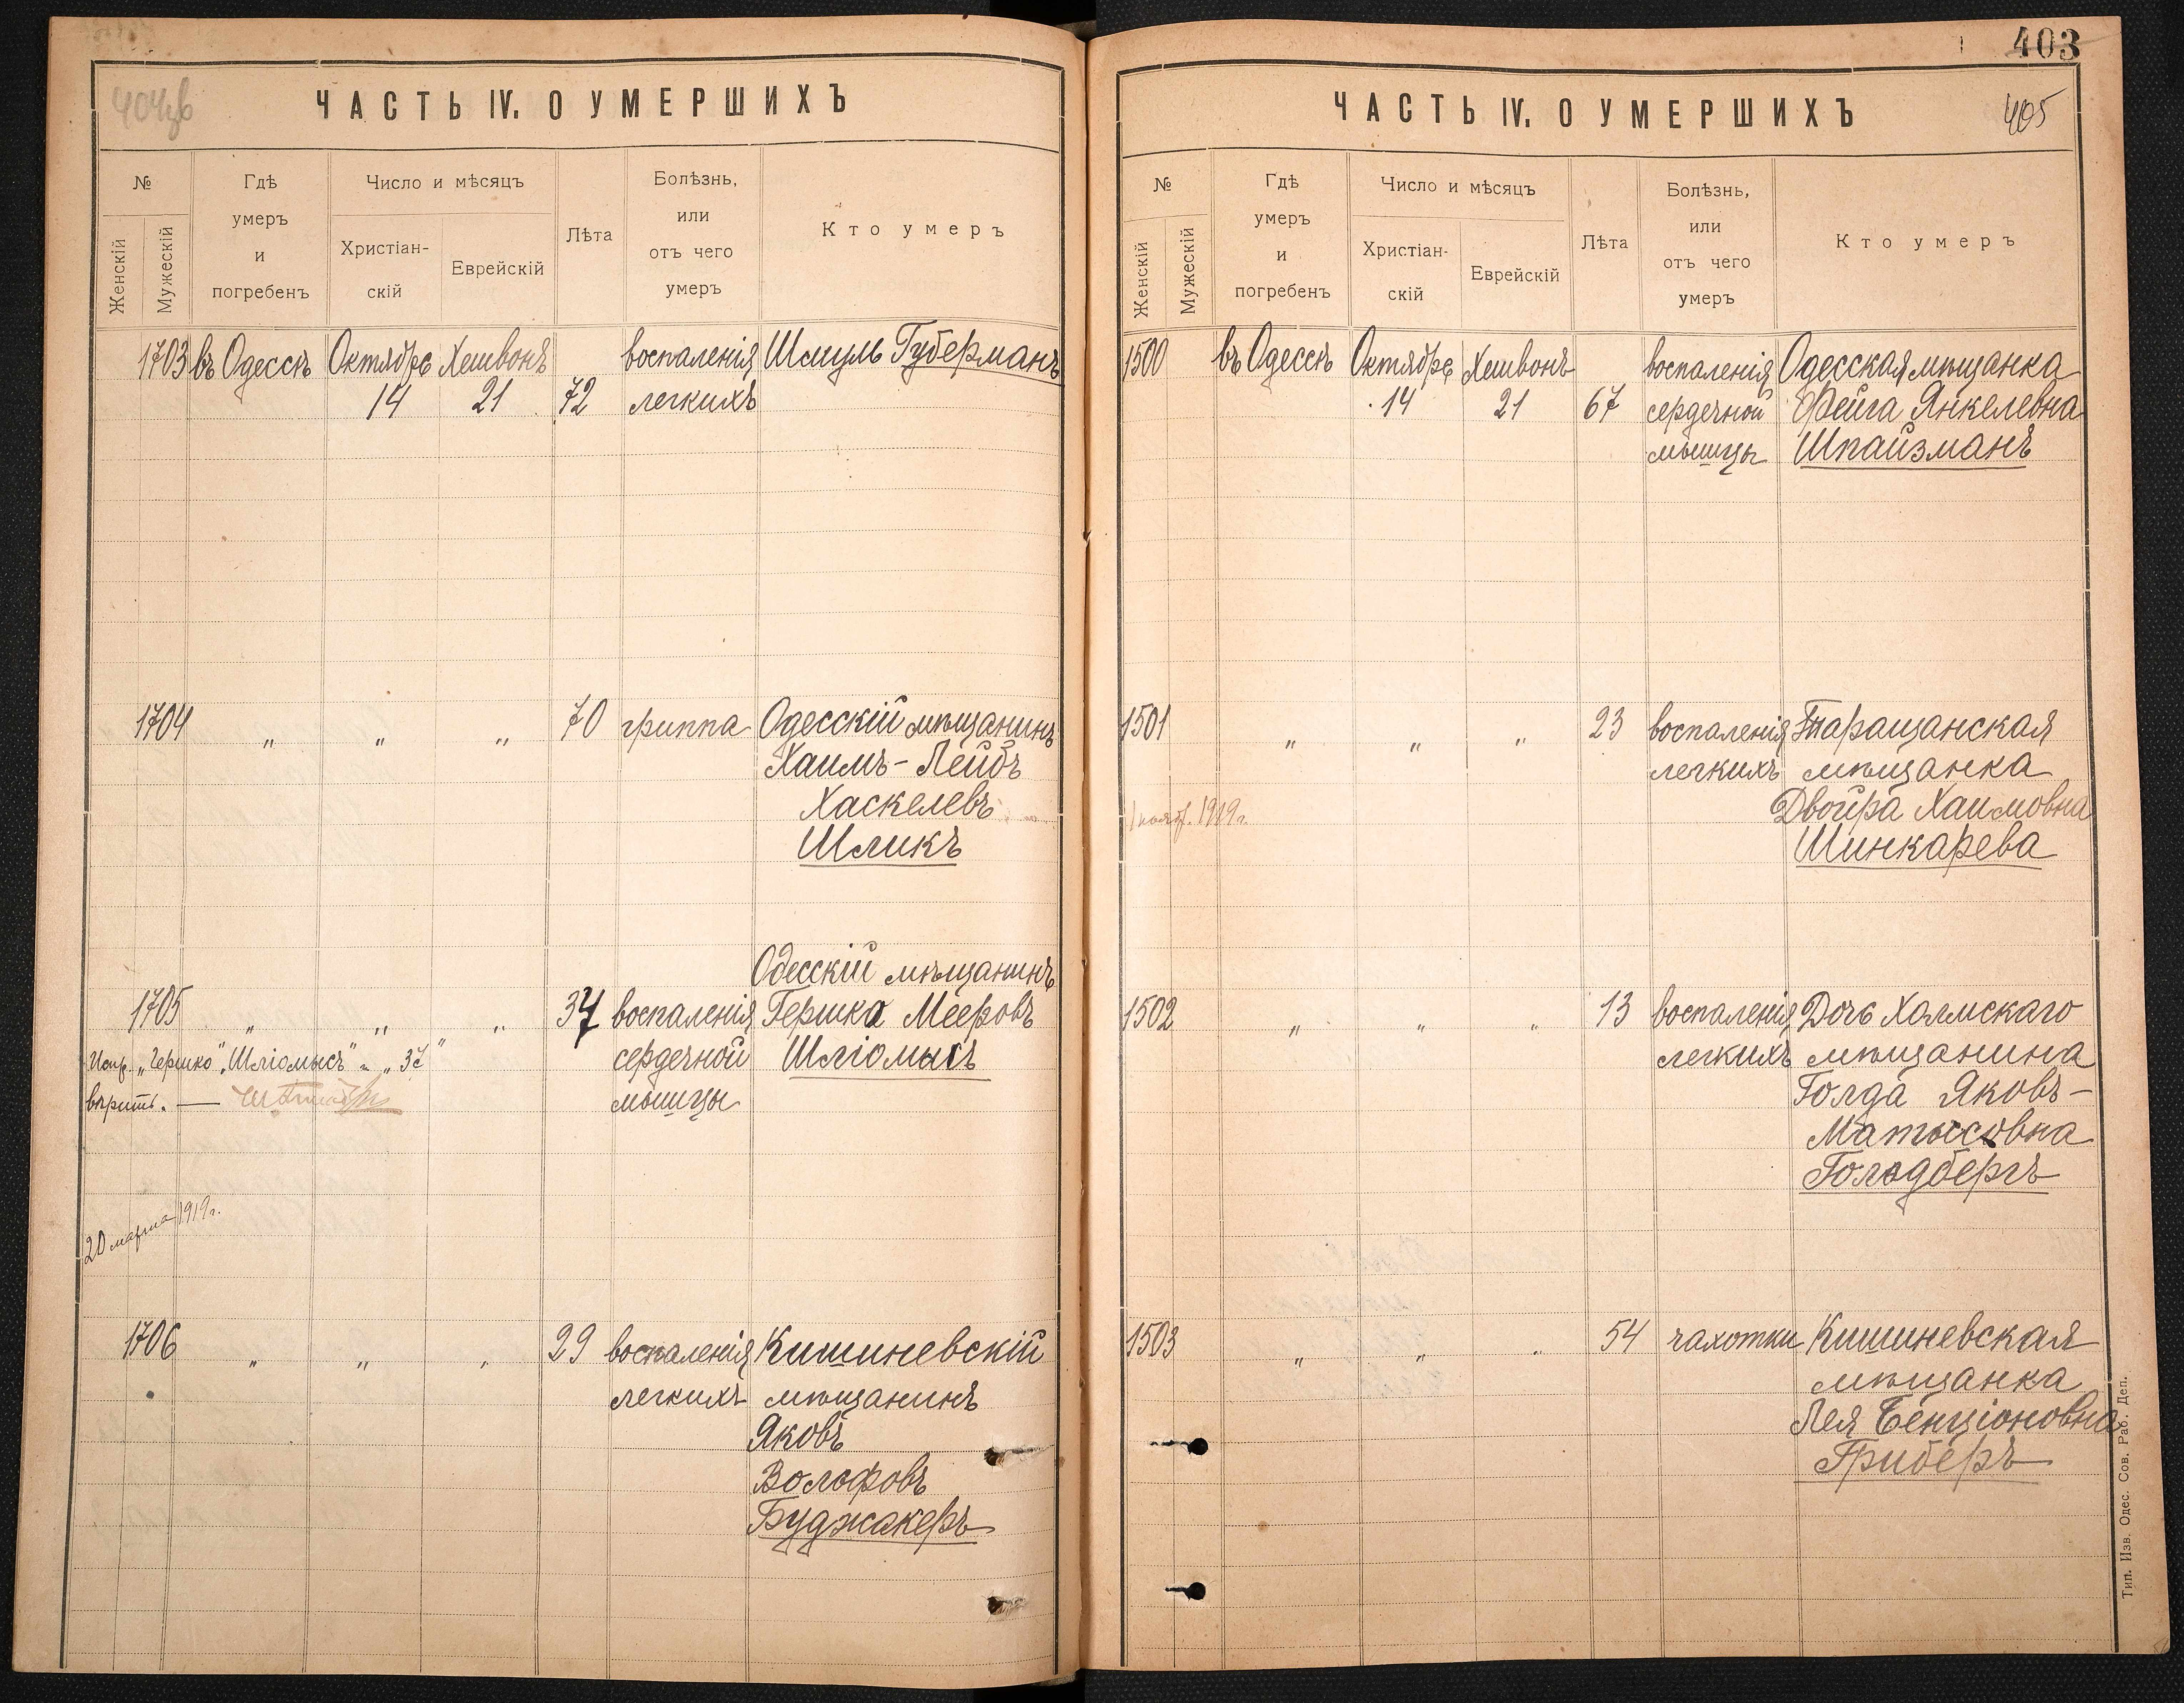 ЧАСТЬ IV. О УМЕРШИХЪ
№
Женскій
Мужескій
Гдѣ
умеръ
и
погребенъ
Число и мѣсяцъ
Христіан-
скій
Еврейскій
Лѣта
Болѣзнь,
или
отъ чего
умеръ
Кто умеръ
1703 въ Одессѣ Октябре Хешвонъ воспаленія Шмуль Губерманъ
14 21 72 легкихъ
1704 „ „ „ 70 гриппа Одесскій мѣщанинъ
Хаимъ-Лейбъ
Хаскелевъ
Шликъ
Одесскій мѣщанинъ
1705 „ „ „ 37 воспаленія Гершко Мееровъ
сердечной Шліомысъ
мышцы
Испр. „Гершко", „Шліомысъ" и „37"
вѣрить. —
20 марта 1919 г.
1706 „ „ „ 29 воспаленія Кишиневскій
легкихъ мѣщанинъ
Яковъ
Волофовъ
Буджакеръ
403
ЧАСТЬ IV. О УМЕРШИХЪ
405
№
Женскій
Мужескій
Гдѣ
умеръ
и
погребенъ
Число и мѣсяцъ
Христіан-
скій
Еврейскій
Лѣта
Болѣзнь,
или
отъ чего
умеръ
Кто умеръ
1500 въ Одессѣ Октябре Хешвонъ воспаленія Одесская мѣщанка
14 21 67 сердечной Фейга Янкелевна
мышцы Шпайзманъ
1501 „ „ „ 23 воспаленія Таращанская
легкихъ мѣщанка
1919 г. Двойра Хаимовна
Шинкарева
1502 „ „ „ 13 воспаленія Дочь Холмскаго
легкихъ мѣщанина
Голда Яковъ-
Матысовна
Гольдбергъ
1503 „ „ „ 54 чахотки Кишиневская
мѣщанка
Лея Бенціоновна
Гриберъ
Тип. Изв. Одес. Сов. Раб. Деп.